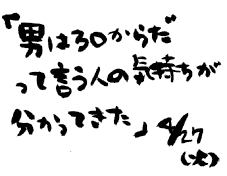 「男は30からだ
って言う人の気持ちが
分かってきた」4/27
(火)